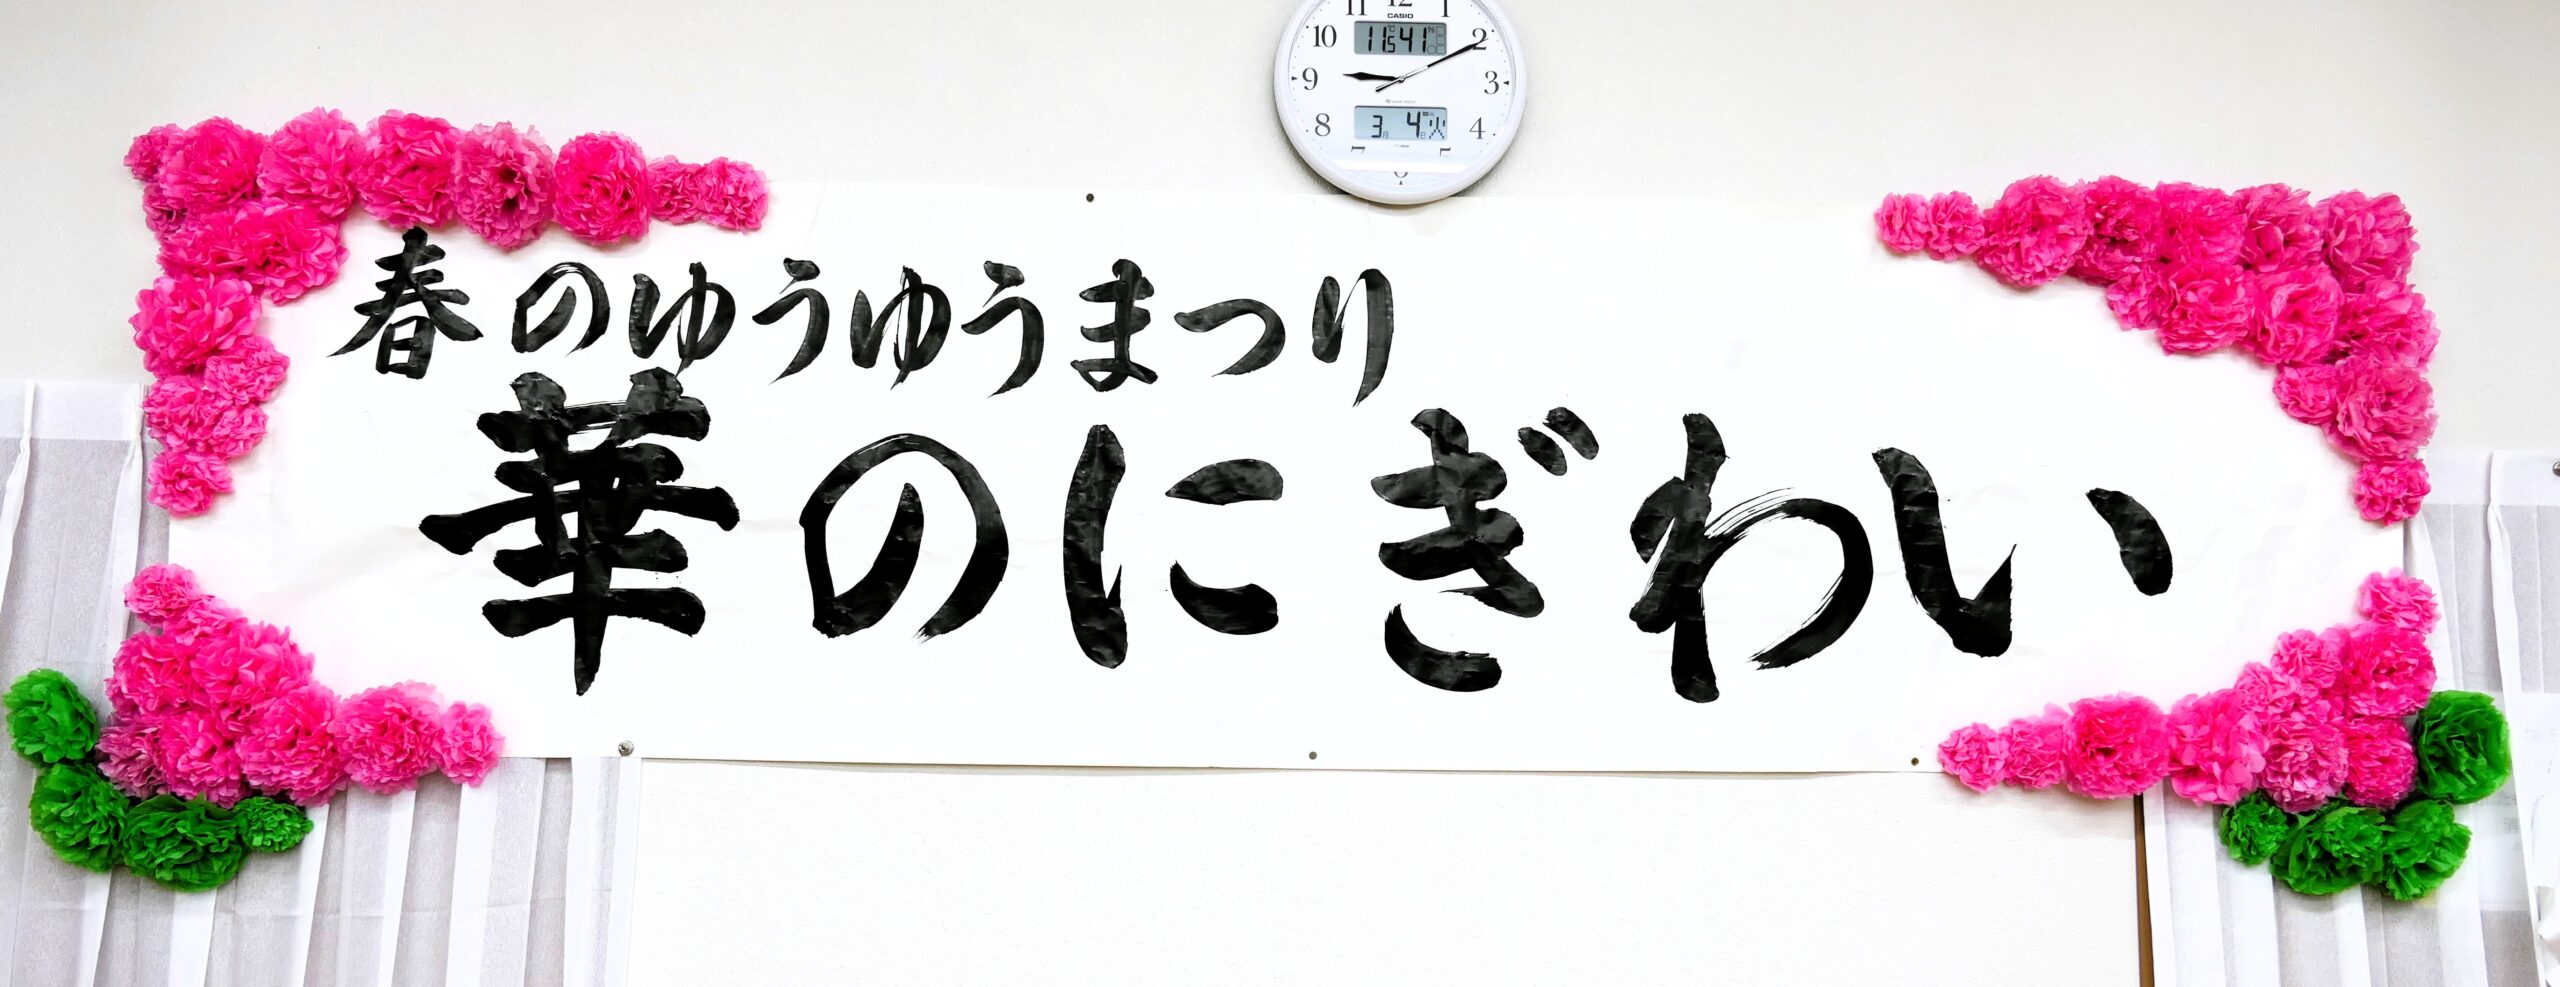 11 12 1
CASIO
10 11.5℃ 41% 2
9 3
8 3月 4日 火 4
春のゆうゆうまつり
華のにぎわい